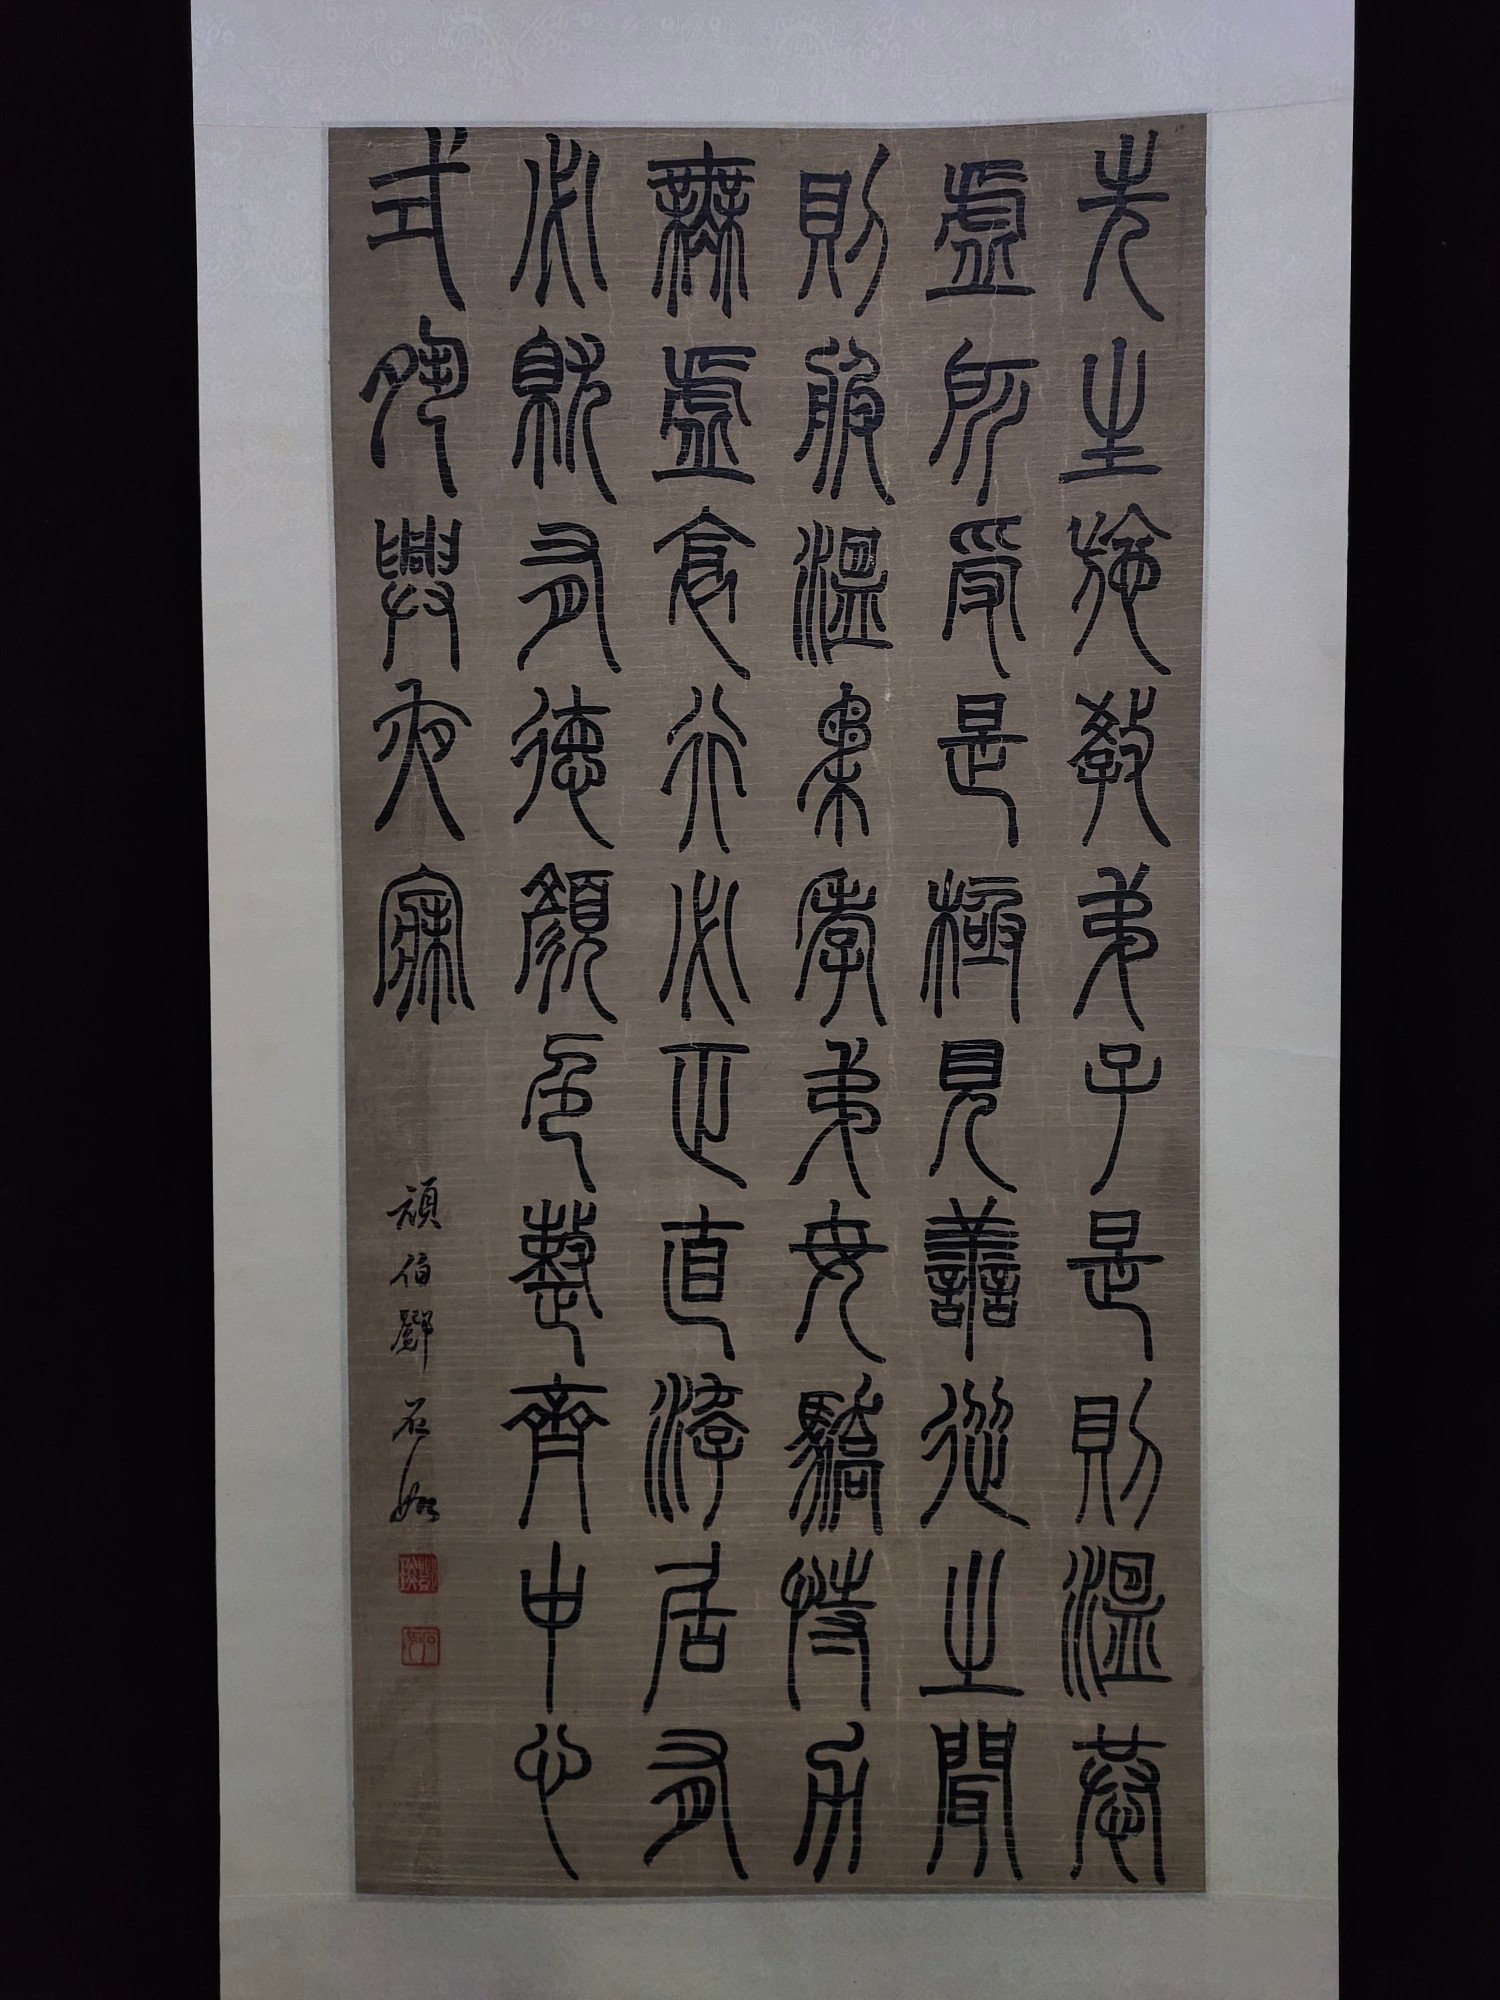 先生施教弟子是則溫恭
虛所受是極見善從之聞
則服溫柔孝弟毋驕恃力
無虛食行必正直游居有
必就有德顏色整齊中心
式夙興夜寐
頑伯鄧石如
鄧琰
石如